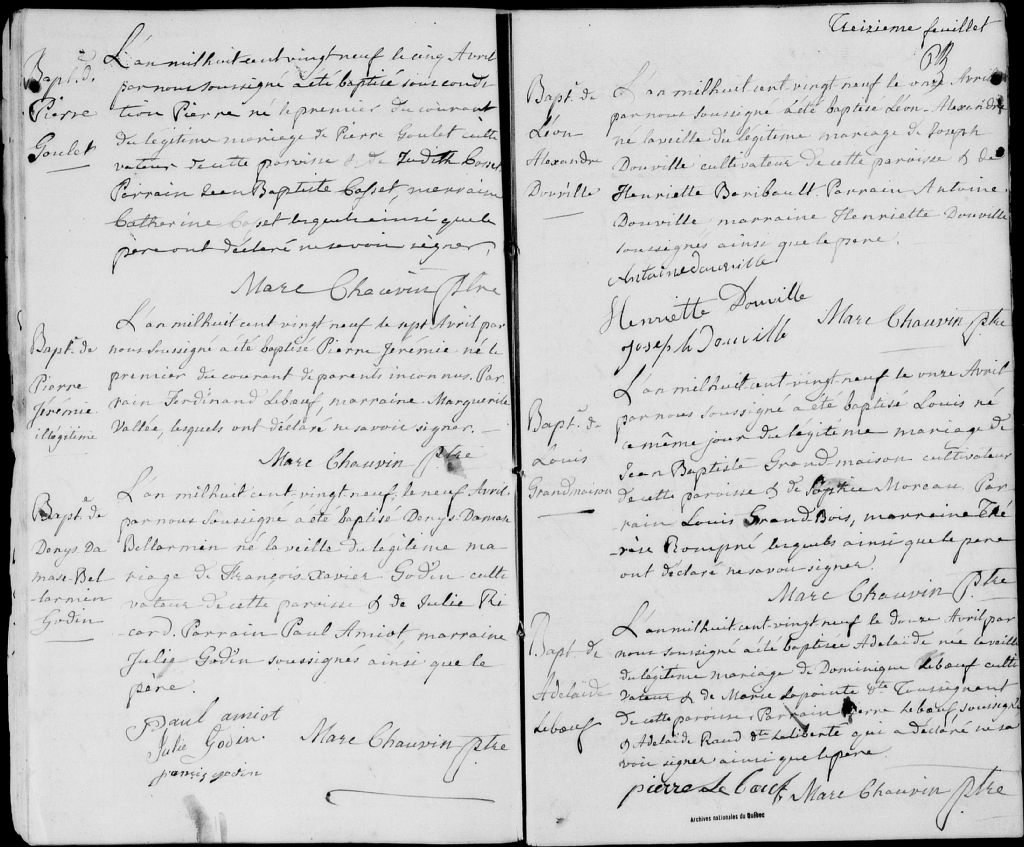 Bapt. d.
Pierre
Goulet
L'an mil huit cent vingt neuf le cinq Avril
par nous soussigné a été baptisé sous condi
tion Pierre né le premier du courant
du légitime mariage de Pierre Goulet culti
vateur de cette paroisse & de Judith Cosset
Parrain Jean Baptiste Cosset, marraine
Catherine Cosset lesquels ainsi que le
père ont déclaré ne savoir signer.
Marc Chauvin Ptre
Bapt. de
Pierre
Jérémie
illégitime
L'an mil huit cent vingt neuf le sept Avril par
nous soussigné a été baptisé Pierre Jérémie né le
premier du courant de parents inconnus. Par
rain Ferdinand Lebœuf, marraine Marguerite
Vallée, lesquels ont déclaré ne savoir signer.
Marc Chauvin Ptre
Bapt. de
Denys Da
mase Bel
larmin
Godin
L'an mil huit cent vingt neuf, le neuf Avril.
par nous soussigné a été baptisé Denys Damase
Bellarmin né la veille du légitime ma
riage de François Xavier Godin culti
vateur de cette paroisse & de Julie Ri
card. Parrain Paul Amiot, marraine
Julie Godin soussignés ainsi que le
pere.
Paul amiot
Julie Godin.
Marc Chauvin Ptre
godin
Treizieme feuillet
Bapt. de
Léon
Alexandre
Douville
L'an mil huit cent vingt neuf le onze Avril
par nous soussigné a été baptisé Léon Alexandre
né la veille du légitime mariage de Joseph
Douville cultivateur de cette paroisse & de
Henriette Baribault. Parrain Antoine
Douville marraine Henriette Douville
soussignés ainsi que le pere.
Antoine douville
Henriette Douville
Joseph Douville
Marc Chauvin Ptre
Bapt. de
Louis
Grandmaison
L'an mil huit cent vingt neuf le onze Avril
par nous soussigné a été baptisé Louis né
ce même jour du légitime mariage de
Jean Baptiste Grandmaison cultivateur
de cette paroisse & de Sophie Moreau. Par
rain Louis GrandBois, marraine Thé
rèse Rompré lesquels ainsi que le pere
ont déclaré ne savoir signer.
Marc Chauvin Ptre
Bapt. de
Adelaïde
Lebœuf
L'an mil huit cent vingt neuf le douze Avril par
nous soussigné a été baptisée Adelaïde née la veille
du légitime mariage de Dominique Lebœuf culti
vateur & de Marie Lapointe dte Toussignant
de cette paroisse. Parrain Pierre Lebœuf soussigné
& Adelaïde Raud dte Laliberté qui a déclaré ne sa
voir signer ainsi que le pere.
pierre Le bœuf
Marc Chauvin Ptre
Archives nationales du Québec